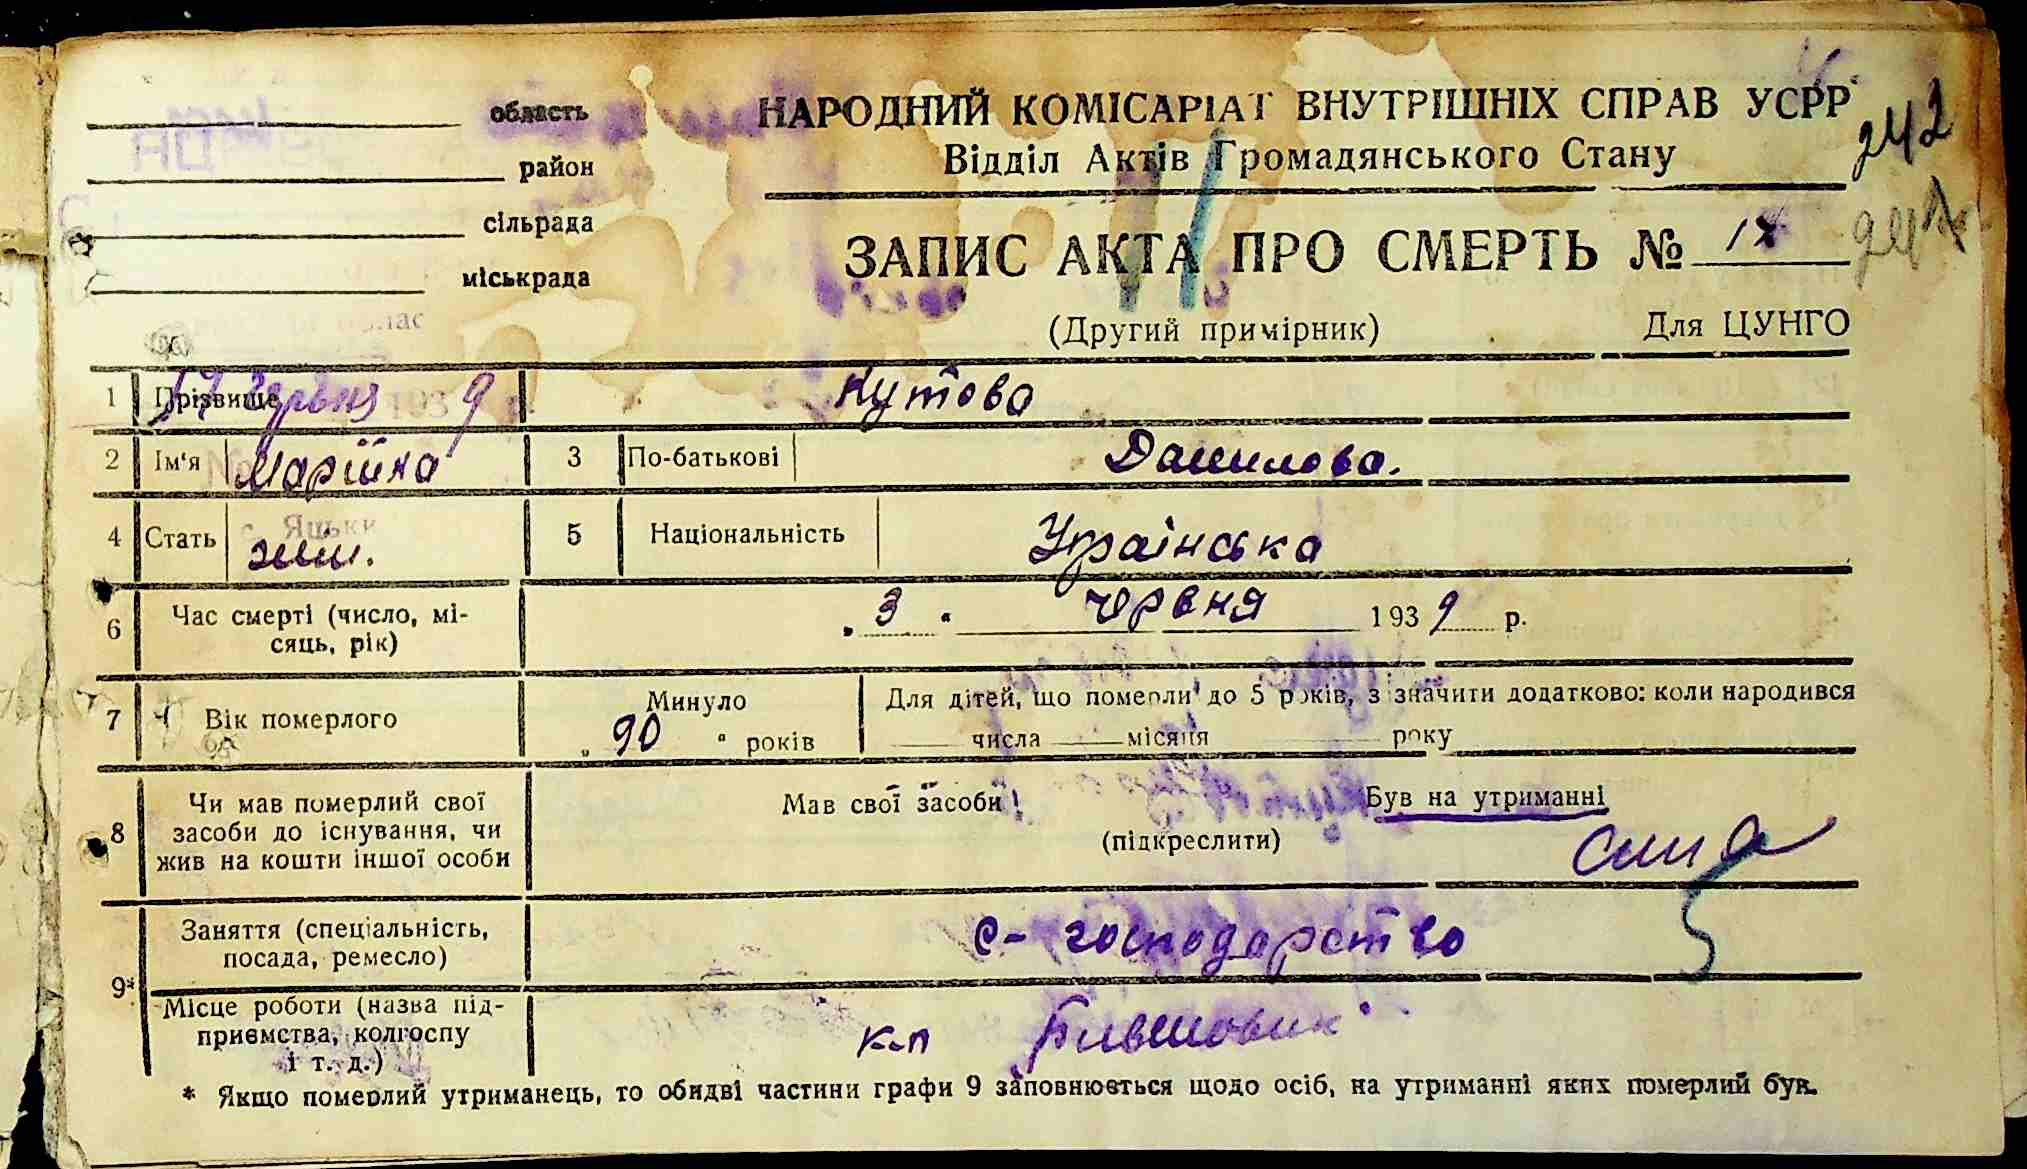 область
район
сільрада
міськрада
НАРОДНИЙ КОМІСАРІАТ ВНУТРІШНІХ СПРАВ УСРР
Відділ Актів Громадянського Стану
242
ЗАПИС АКТА ПРО СМЕРТЬ №
(Другий примірник) Для ЦУНГО
червня 1939
1 Прізвище Кутова
2 Ім'я Марійка 3 По-батькові Данилова.
с. Яцьки
4 Стать жін. 5 Національність Українська
6 Час смерті (число, мі-
сяць, рік) „3“ червня 1939 р.
7 Вік померлого Минуло „90“ років
Для дітей, що померли до 5 років, зазначити додатково: коли народився
числа місяця року
8 Чи мав померлий свої
засоби до існування, чи
жив на кошти іншої особи
Мав свої засоби Був на утриманні
(підкреслити)
сина
9* Заняття (спеціальність,
посада, ремесло) с-господарство
Місце роботи (назва під-
приємства, колгоспу
і т. д.) к-п Більшовик
* Якщо померлий утриманець, то обидві частини графи 9 заповнюється щодо осіб, на утриманні яких померлий був.